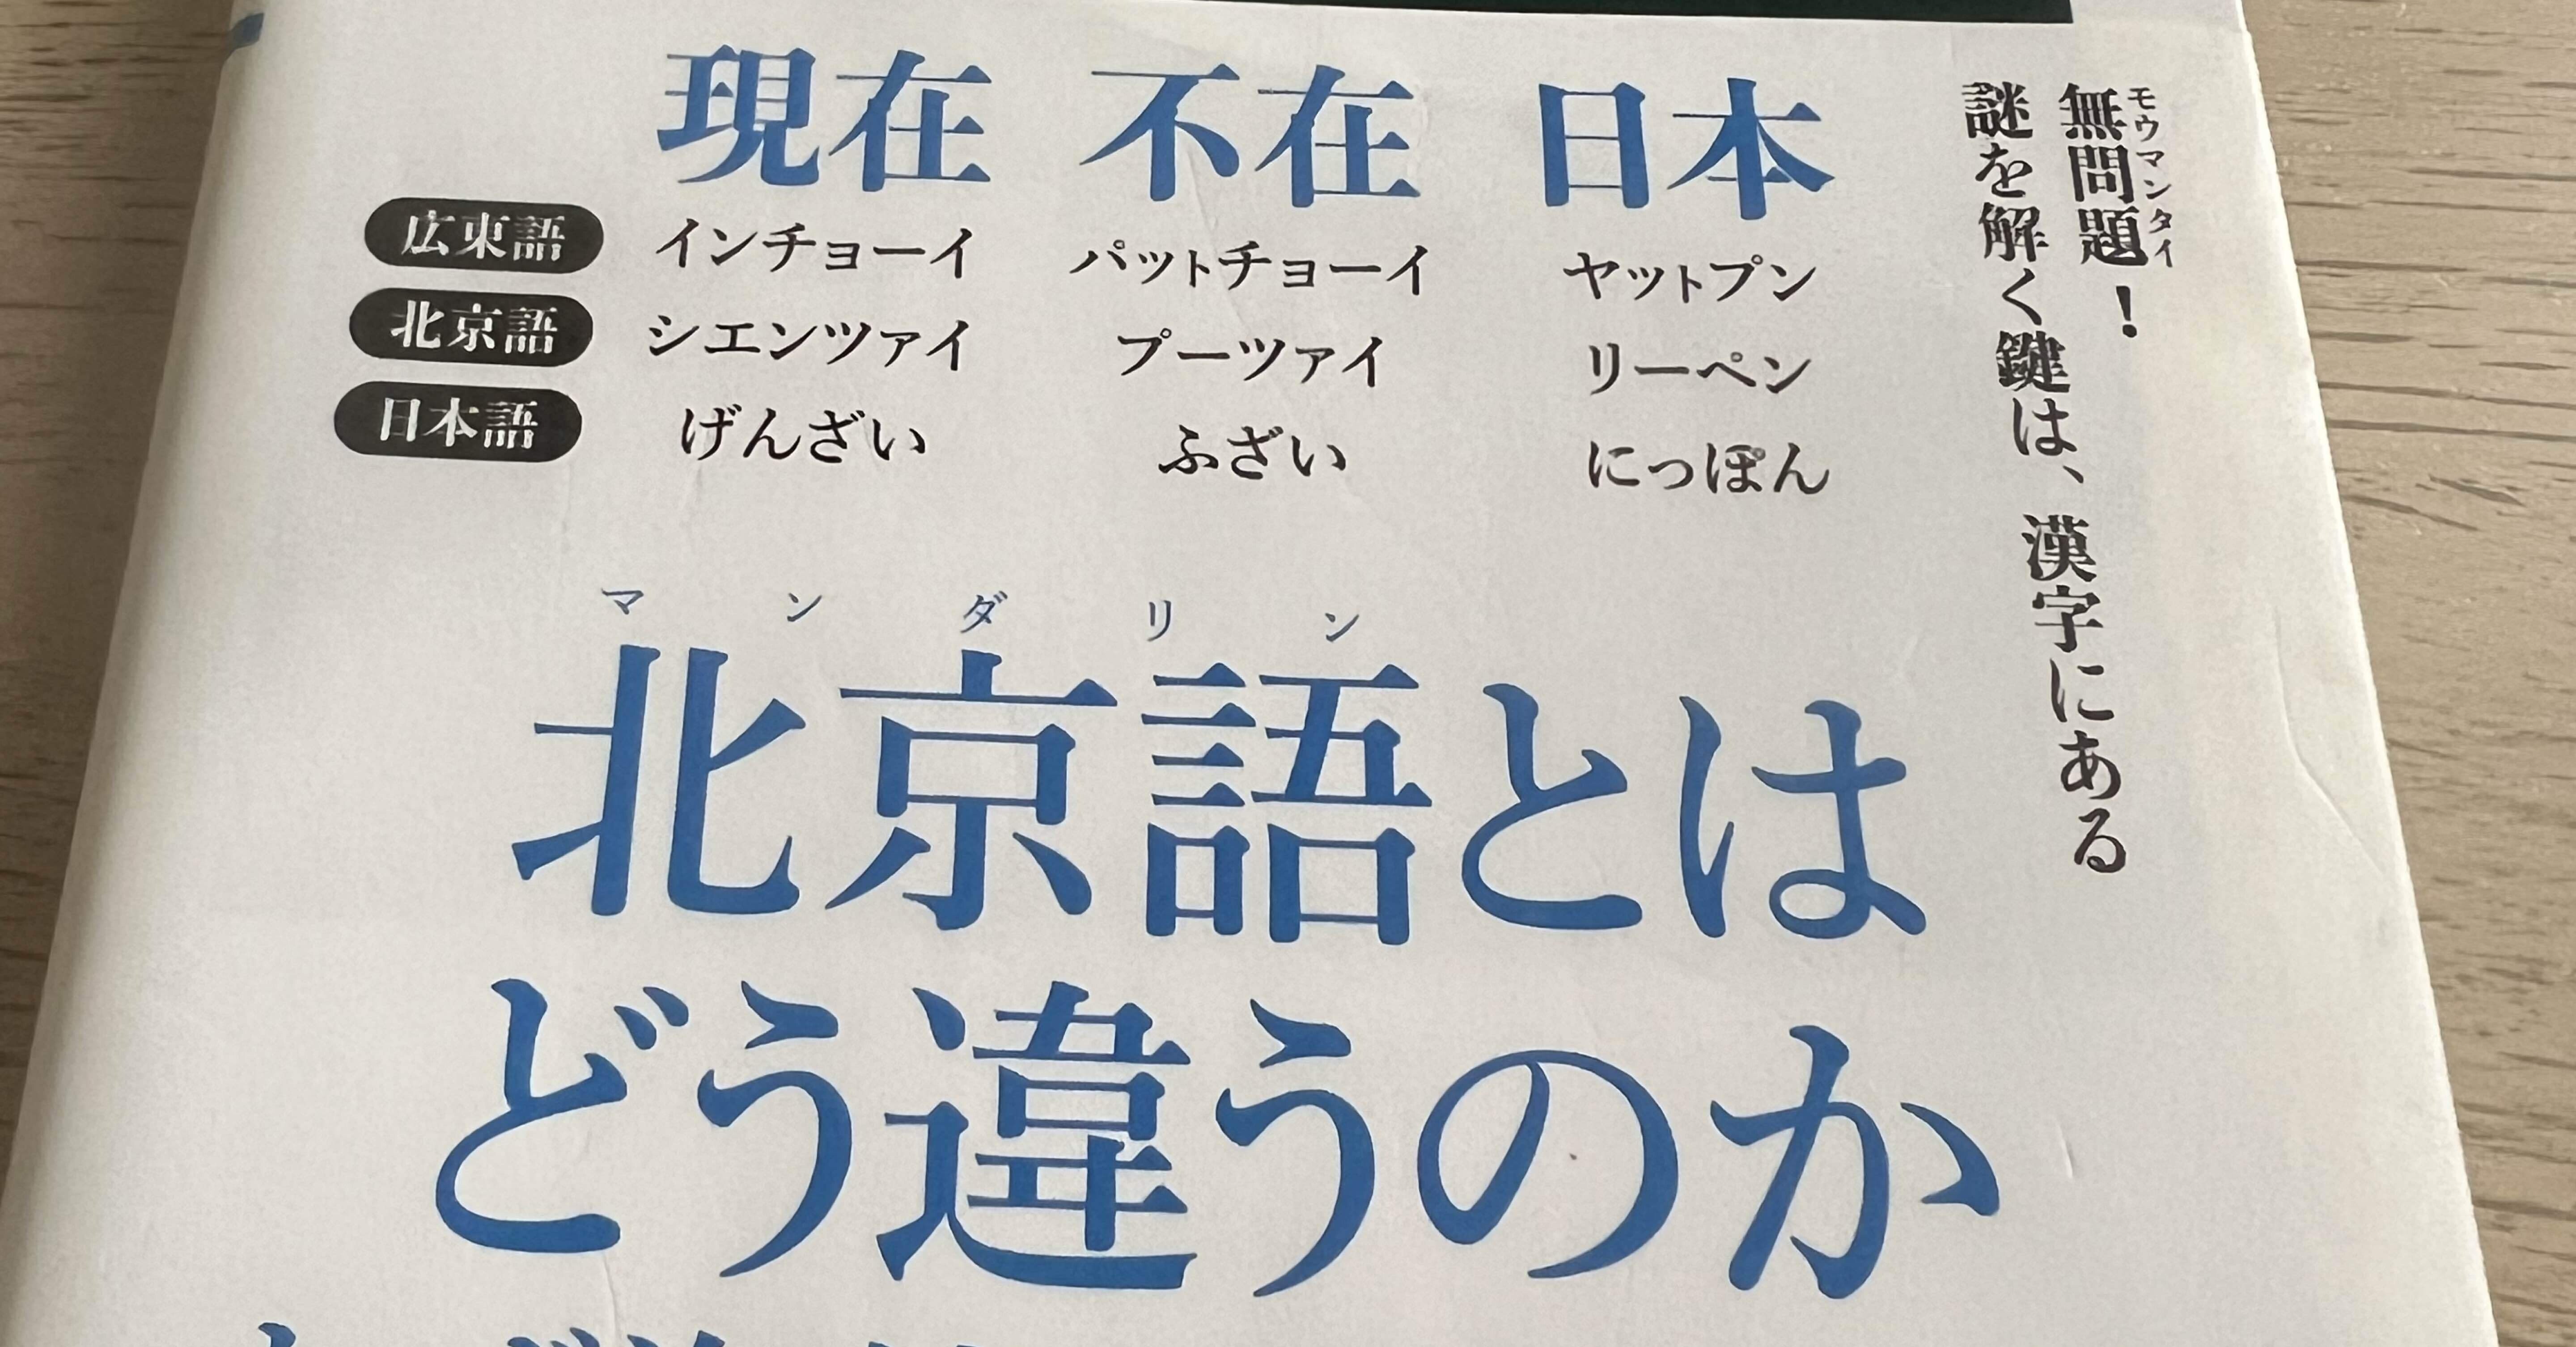 無問題！
モウマンタイ
謎を解く鍵は、漢字にある
現在 不在 日本
広東語 インチョーイ パットチョーイ ヤットプン
北京語 シエンツァイ プーツァイ リーペン
日本語 げんざい ふざい にっぽん
マンダリン
北京語とは
どう違うのか